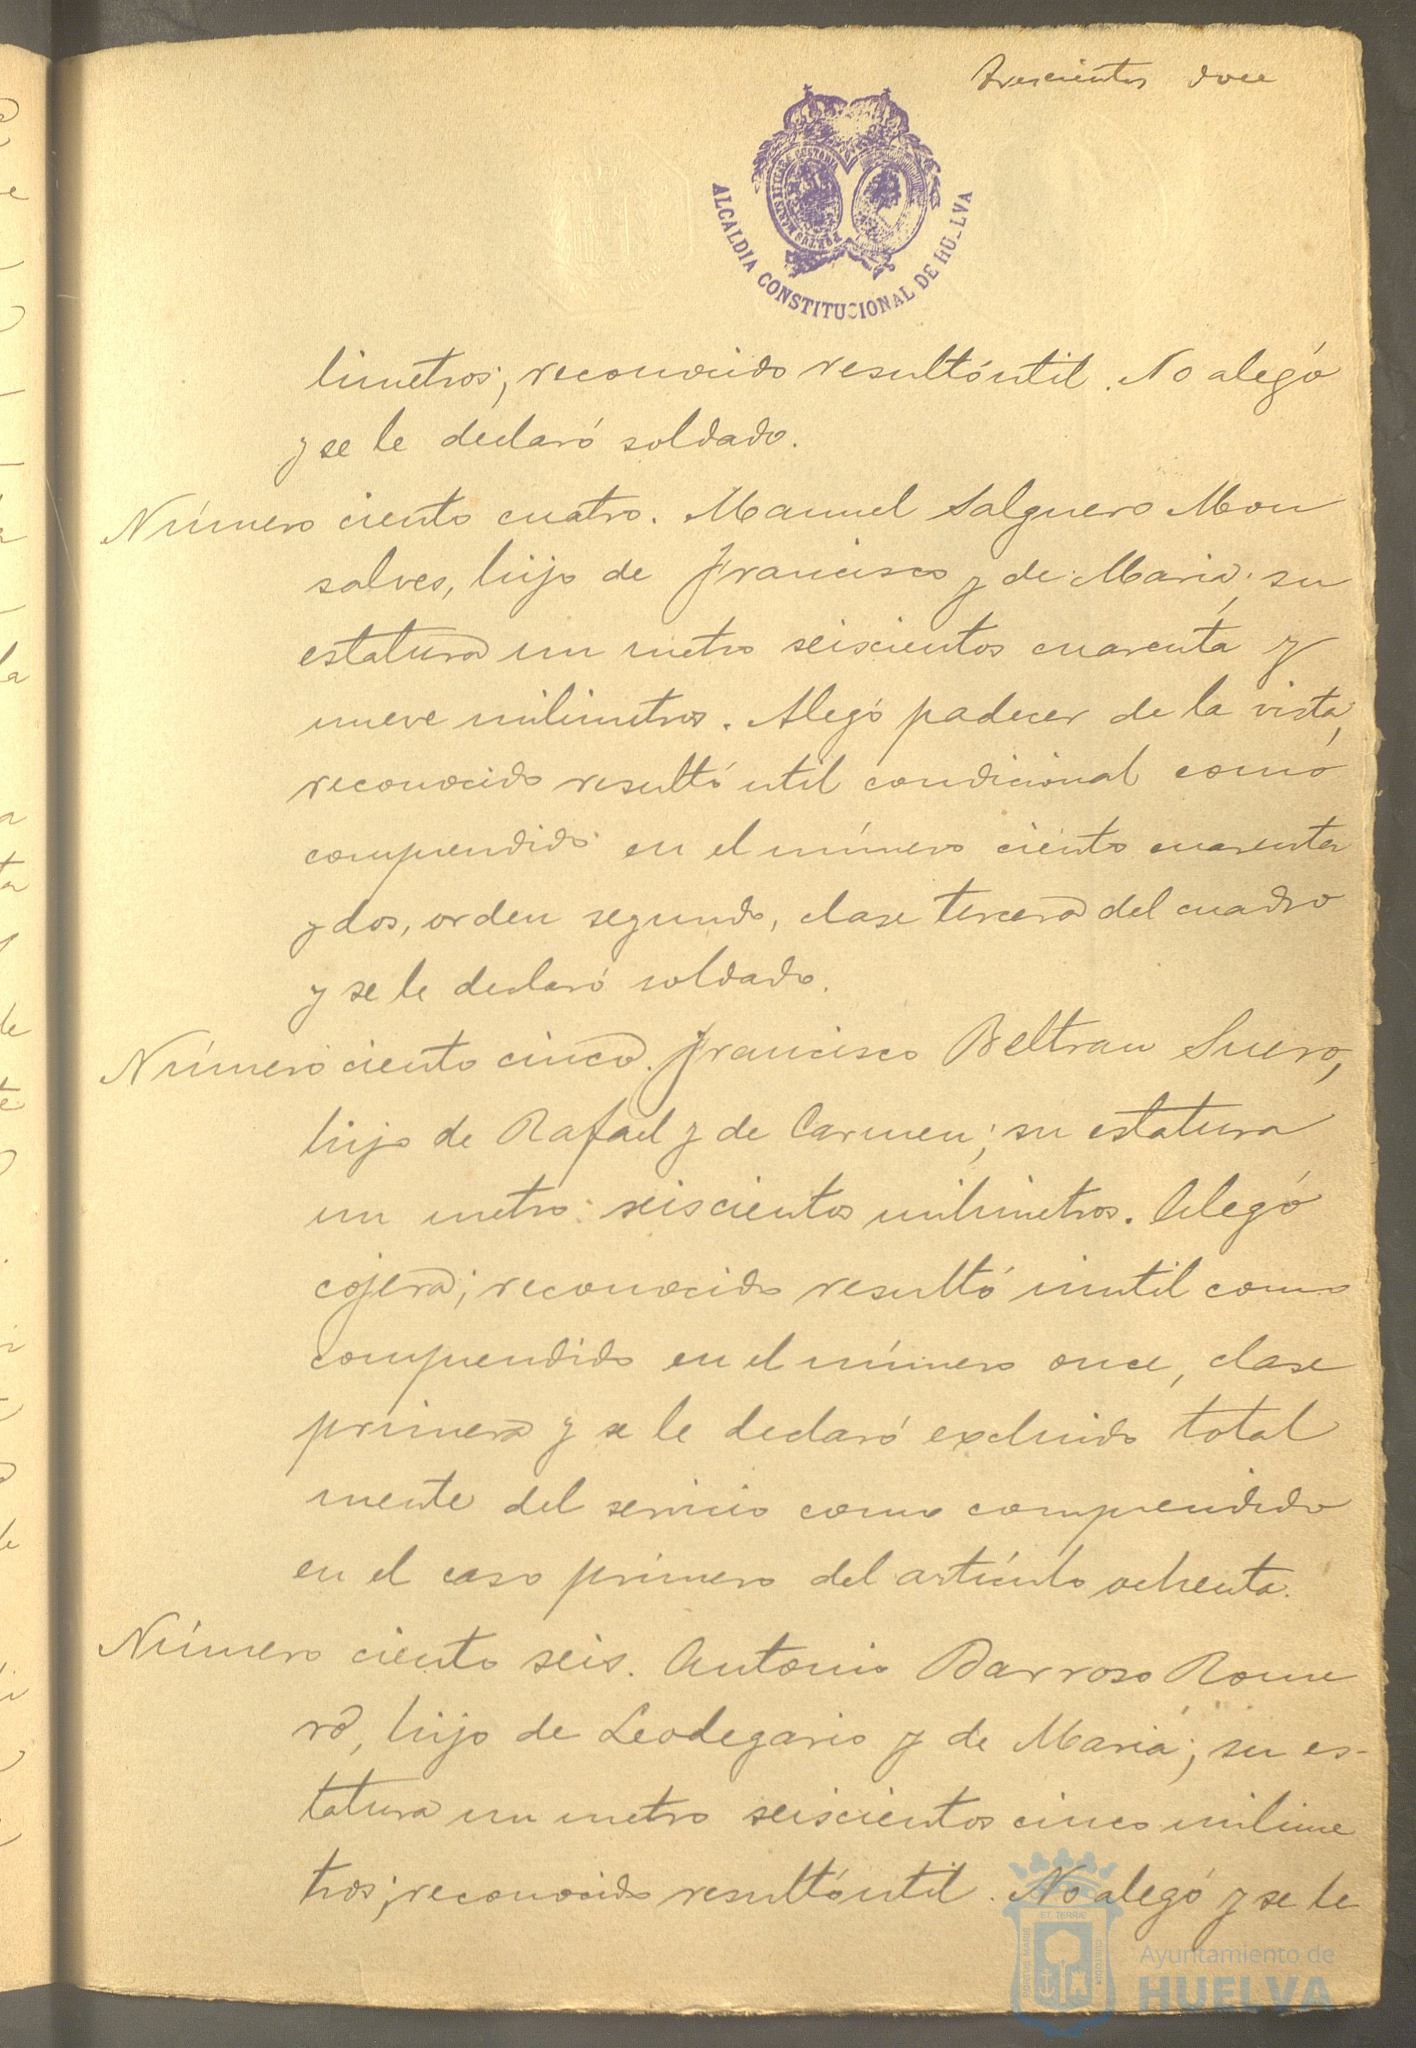 Trescientos doce
PORTUS MARIS ET TERRE CUSTODIA
ALCALDIA CONSTITUCIONAL DE HUELVA
limetros; reconocido resultó util. No alegó
y se le declaró soldado.
Número ciento cuatro. Manuel Salguero Mon
salves, hijo de Francisco y de Maria; su
estatura un metro seiscientos cuarenta y
nueve milimetros. Alegó padecer de la vista,
reconocido resultó util condicional como
comprendido en el número ciento cuarenta
y dos, orden segundo, clase tercera del cuadro
y se le declaró soldado.
Número ciento cinco. Francisco Beltran Suero,
hijo de Rafael y de Carmen; su estatura
un metro seiscientos milimetros. Alegó
cojera; reconocido resultó inutil como
comprendido en el número once, clase
primera y se le declaró excluido total
mente del servicio como comprendido
en el caso primero del artículo ochenta.
Número ciento seis. Antonio Barroso Rome
ro, hijo de Leodegario y de Maria; su es-
tatura un metro seiscientos cinco milime
tros; reconocido resultó util. No alegó y se le
PORTUS MARIS ET TERRÆ CUSTODIA
Ayuntamiento de
HUELVA